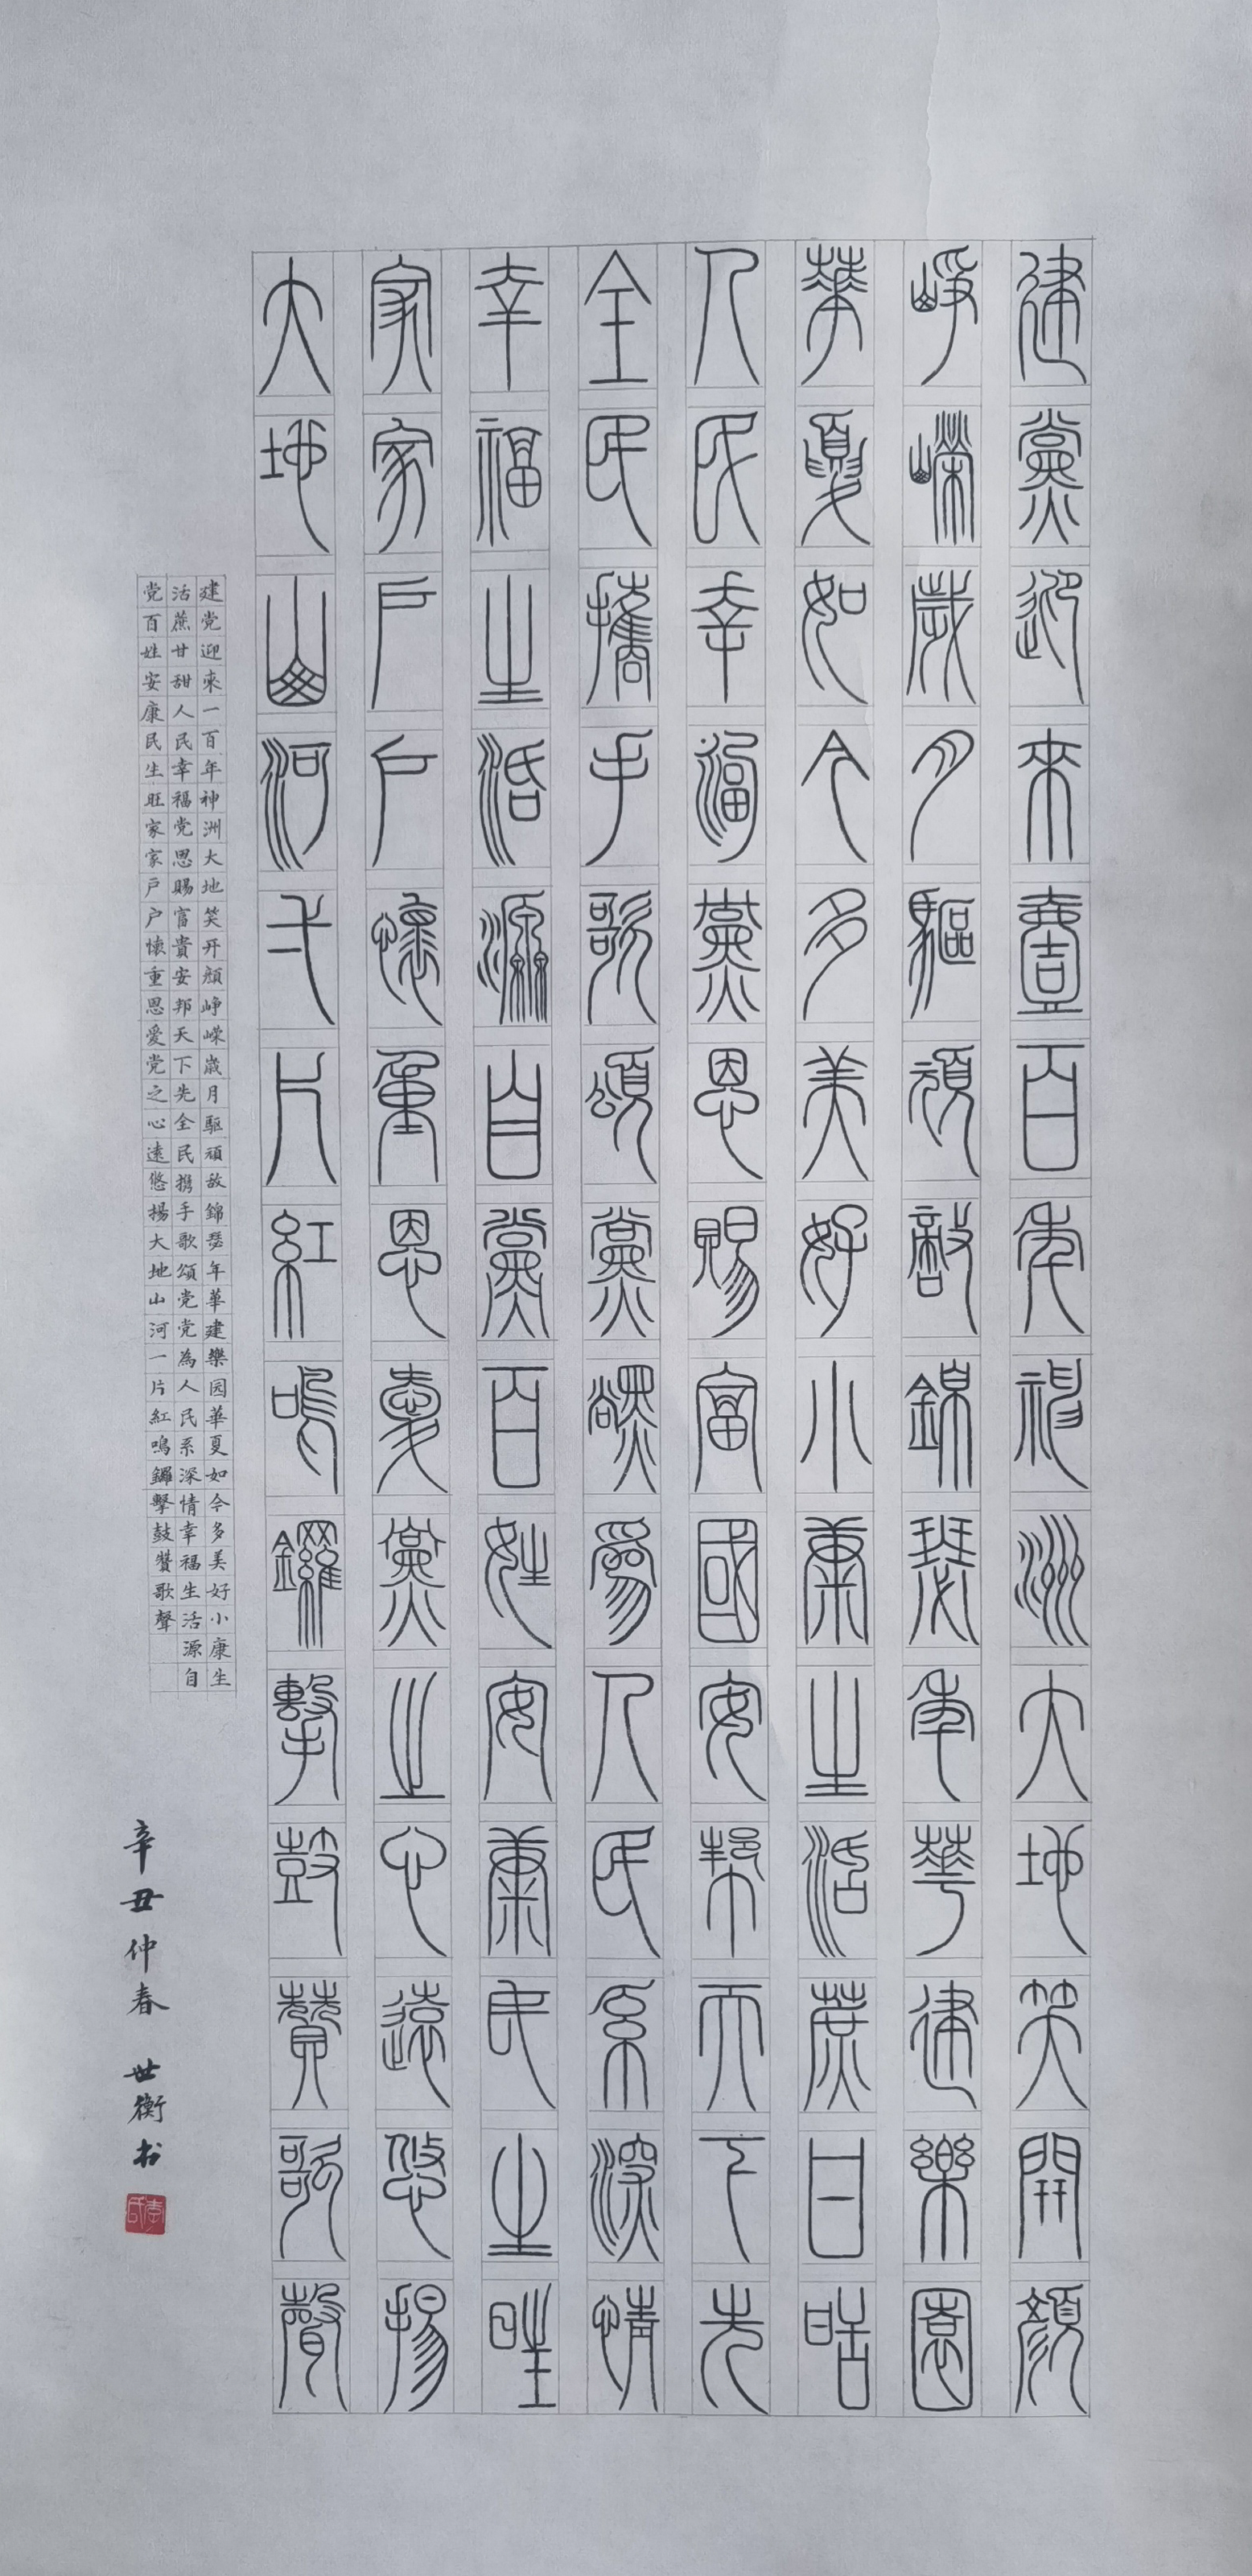 建黨迎來壹百年神洲大地笑開顏
崢嶸歲月驅頑敵錦瑟年華建樂園
華夏如今多美好小康生活蔗甘甜
人民幸福黨恩賜富國安邦天下先
全民攜手歌頌黨黨為人民系深情
幸福生活源自黨百姓安康民生旺
家家戶戶懷重恩愛黨之心遠悠揚
大地山河弌片紅鳴鑼擊鼓贊歌聲
建党迎來一百年神洲大地笑开顔峥嵘歲月驅頑敌錦瑟年華建樂园華夏如今多美好小康生
活蔗甘甜人民幸福党恩賜富貴安邦天下先全民携手歌頌党党為人民系深情幸福生活源自
党百姓安康民生旺家家户户懷重恩爱党之心遠悠揚大地山河一片紅鳴鑼擊鼓贊歌聲
辛丑仲春 世衡书
李氏